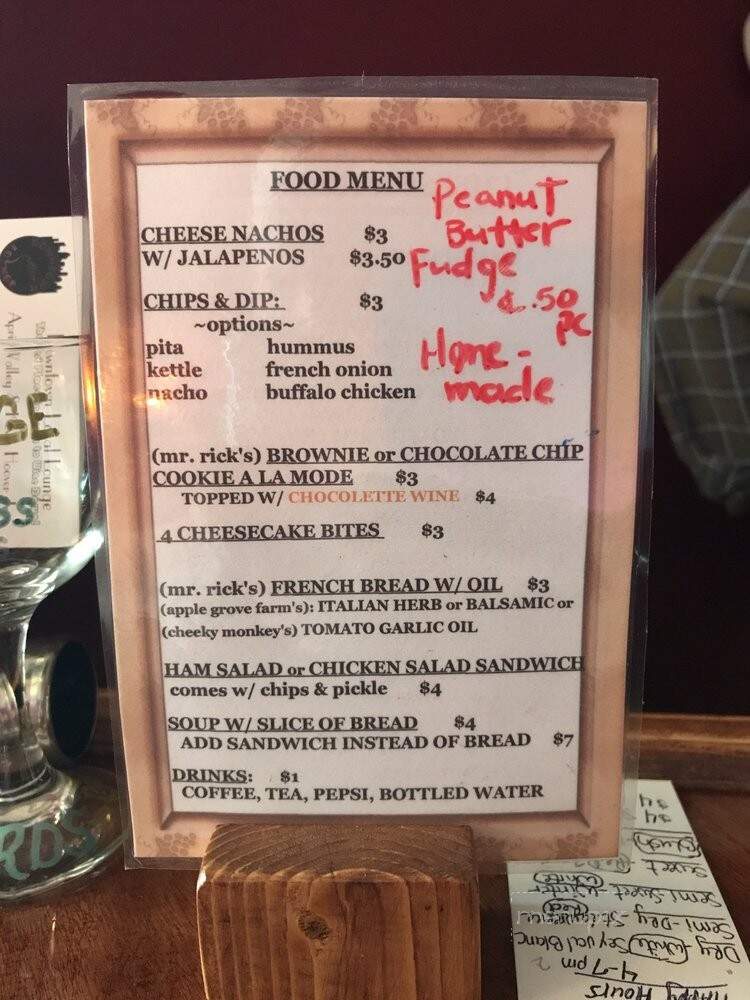 FOOD MENU
CHEESE NACHOS $3
W/ JALAPENOS $3.50
Peanut
Butter
Fudge
¢.50
pc
Home-
made
CHIPS & DIP: $3
~options~
pita hummus
kettle french onion
nacho buffalo chicken
(mr. rick's) BROWNIE or CHOCOLATE CHIP
COOKIE A LA MODE $3
TOPPED W/ CHOCOLETTE WINE $4
4 CHEESECAKE BITES $3
(mr. rick's) FRENCH BREAD W/ OIL $3
(apple grove farm's): ITALIAN HERB or BALSAMIC or
(cheeky monkey's) TOMATO GARLIC OIL
HAM SALAD or CHICKEN SALAD SANDWICH
comes w/ chips & pickle $4
SOUP W/ SLICE OF BREAD $4
ADD SANDWICH INSTEAD OF BREAD $7
DRINKS: $1
COFFEE, TEA, PEPSI, BOTTLED WATER
Happy Hours
4-7pm
Dry (White) Seyval Blanc
Semi-Dry (Red)
Semi-Sweet - Winter (White)
Sweet - (Blush)
$4
$4
RDS